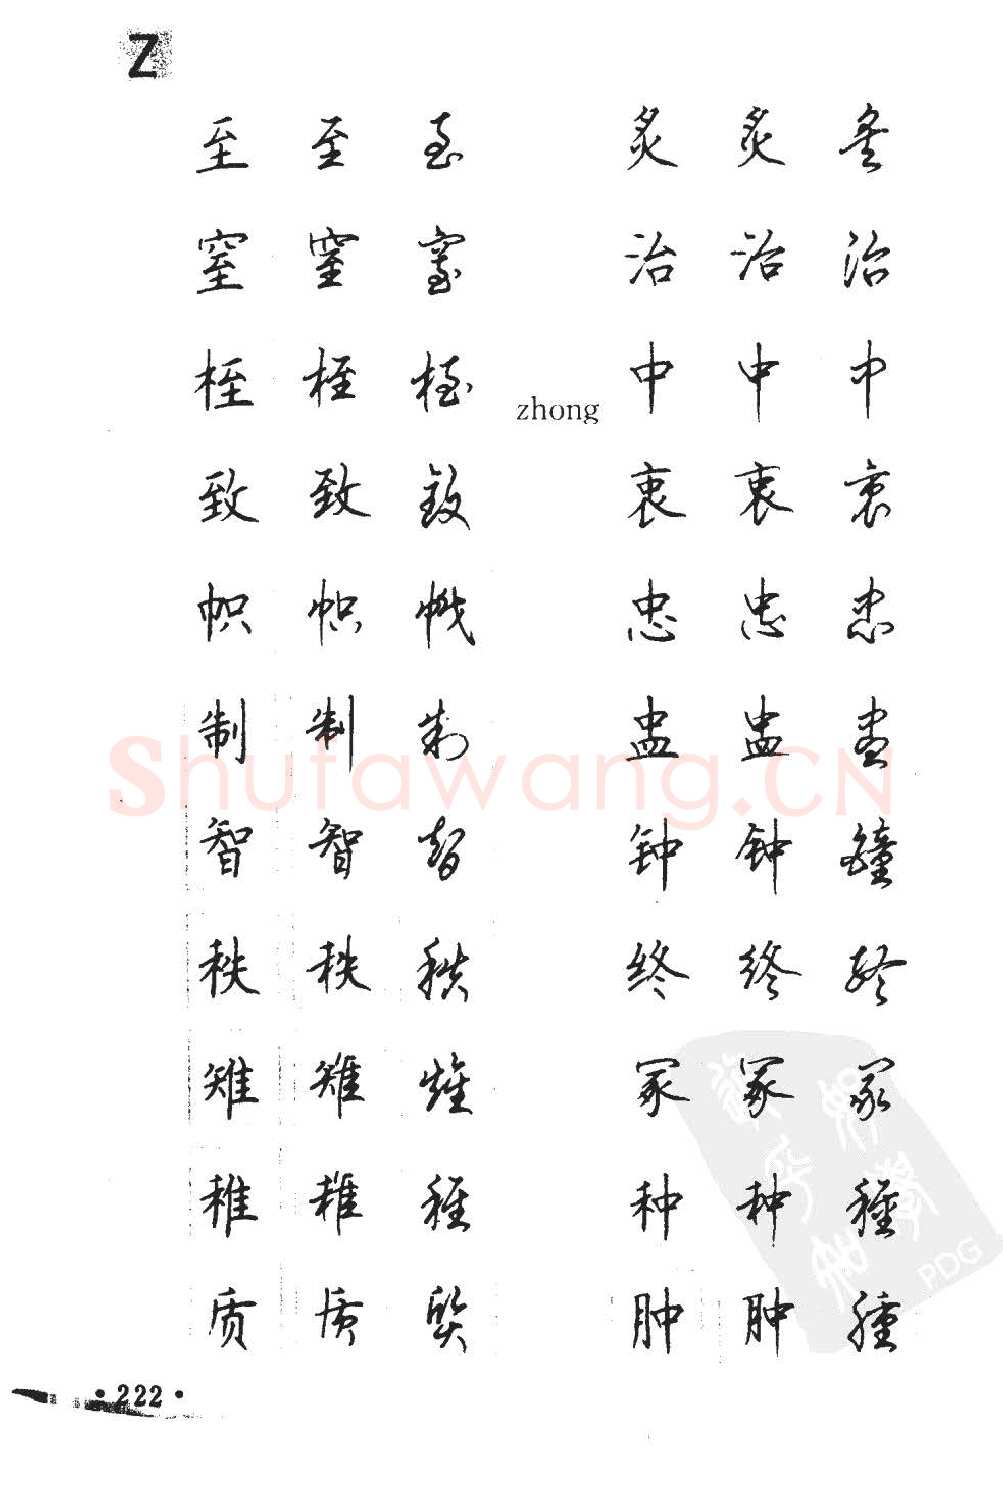 Z
至 至 至 炙 炙 炙
窒 窒 窒 治 治 治
桎 桎 桎 zhong 中 中 中
致 致 致 衷 衷 衷
帜 帜 幟 忠 忠 忠
制 制 制 盅 盅 盅
智 智 智 钟 钟 鐘
秩 秩 秩 终 终 終
雉 雉 雉 冢 冢 冢
稚 稚 稚 种 种 種
质 质 質 肿 肿 腫
Shufawang.CN
PDG
·222·